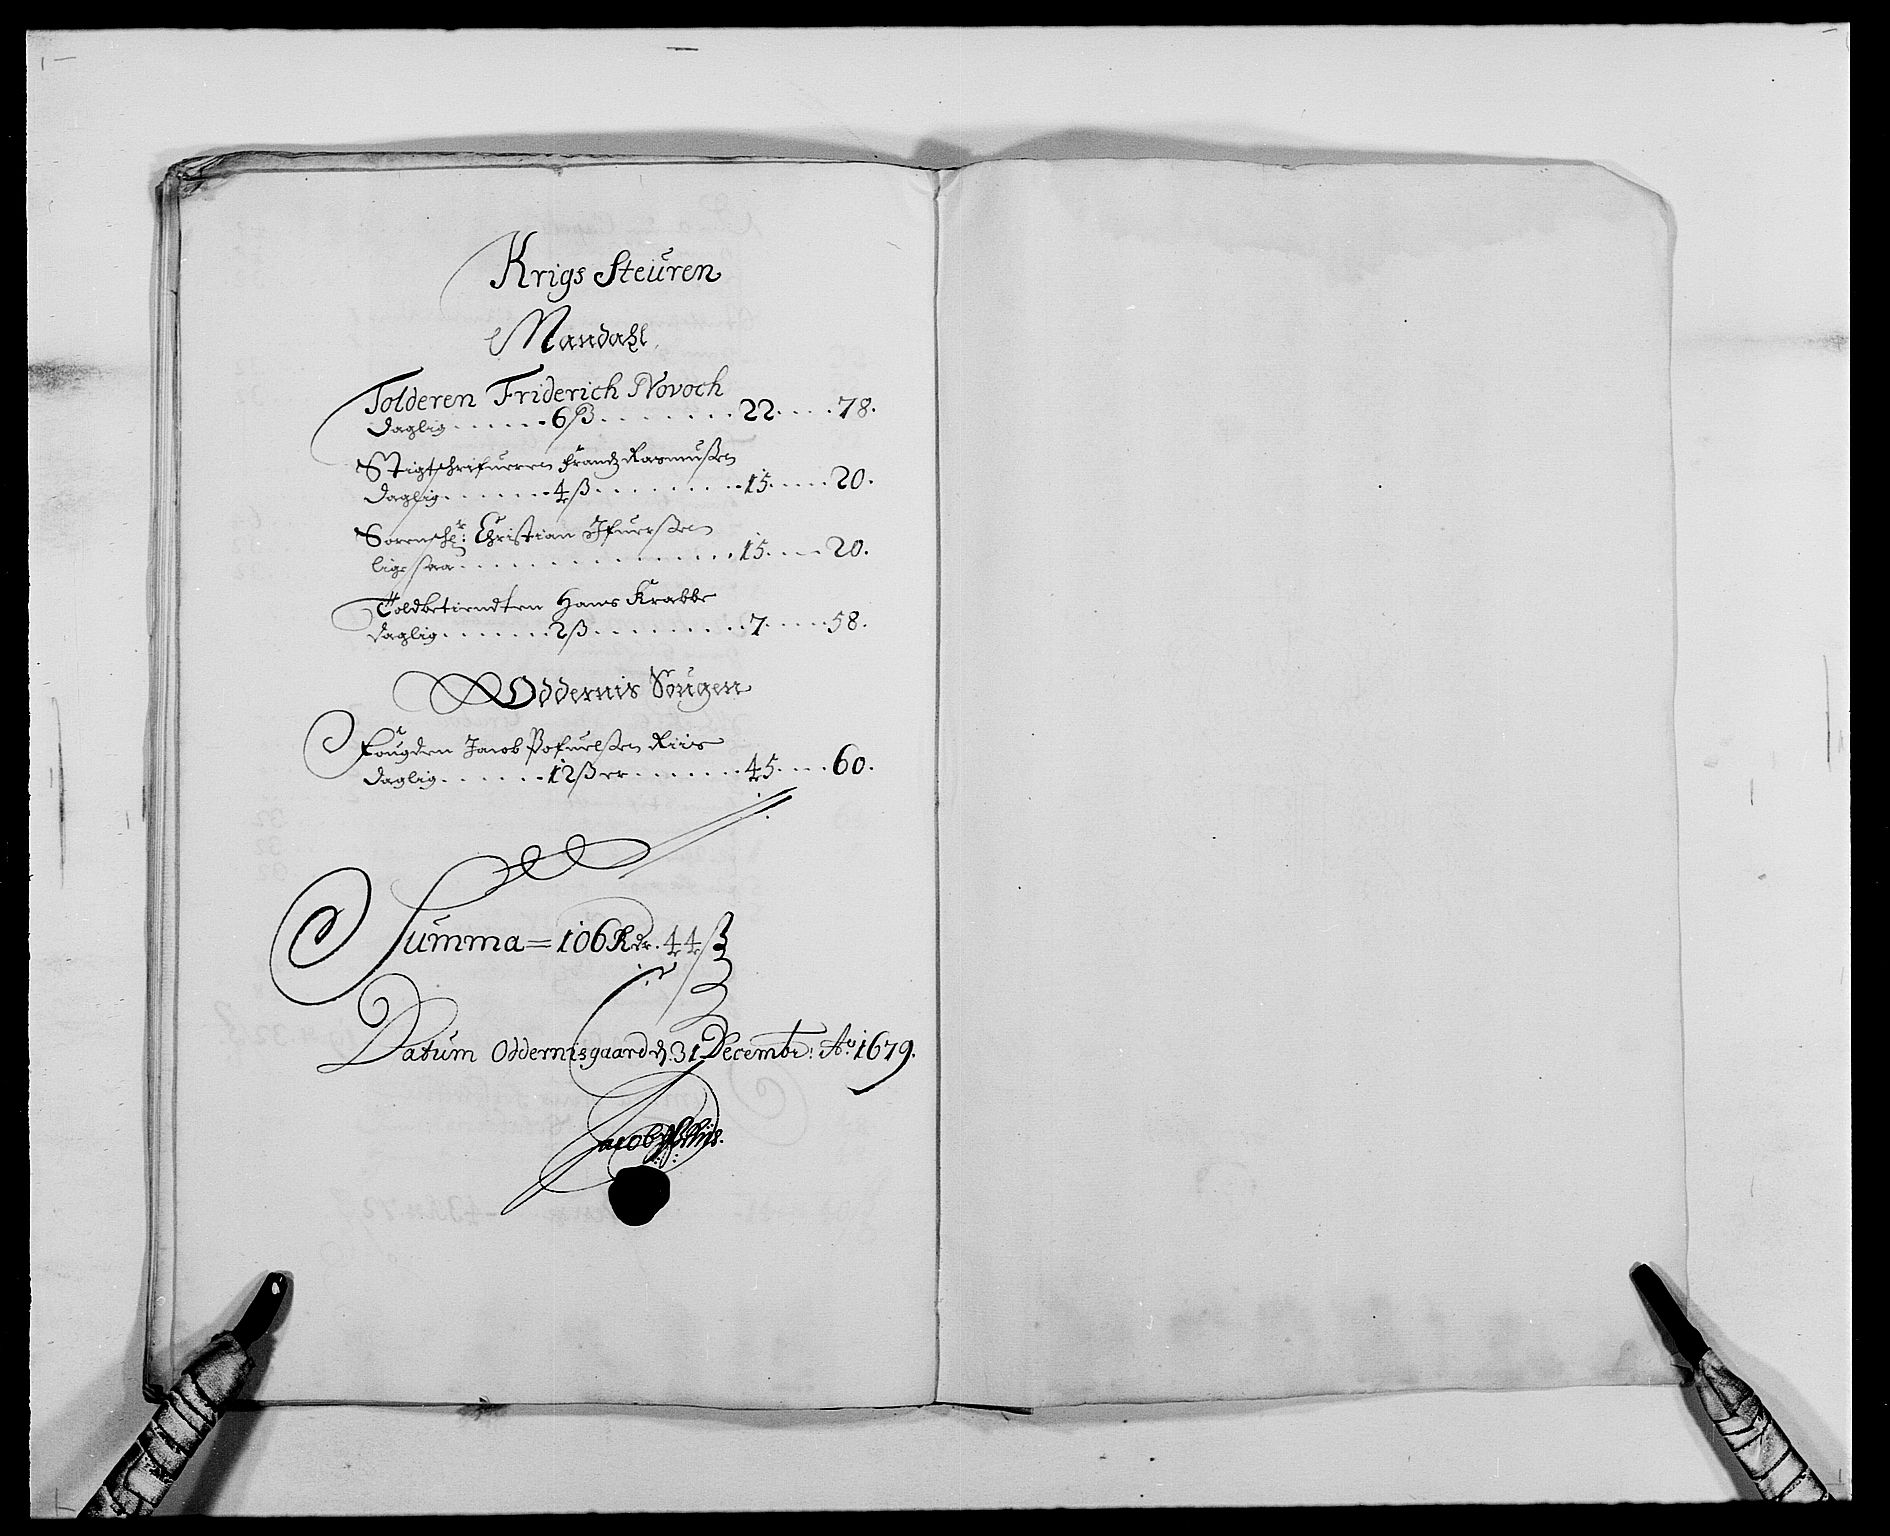 Krigs Steuren
Mandahl
Tolderen Friderich Novoch
daglig ...... 6 ß ........ 22 .... 78.
Stigtschrifueren Frandz Rasmußen
daglig ....... 4 ß ......... 15 .... 20.
Sorensch: Christian Ifuerßen
lige saa ................ 15 .... 20.
Toldbetiendten Hans Krabbe
daglig ....... 2 ß ......... 7 .... 58.
Oddernis Sougen
Fougden Jacob Pofuelßen Riis
daglig ...... 12 ß er ....... 45 .... 60.
Summa = 106 Rdr. 44 ß
Datum Oddernisgaard d. 31 Decembr: Ao 1679.
Jacob PS Riis.